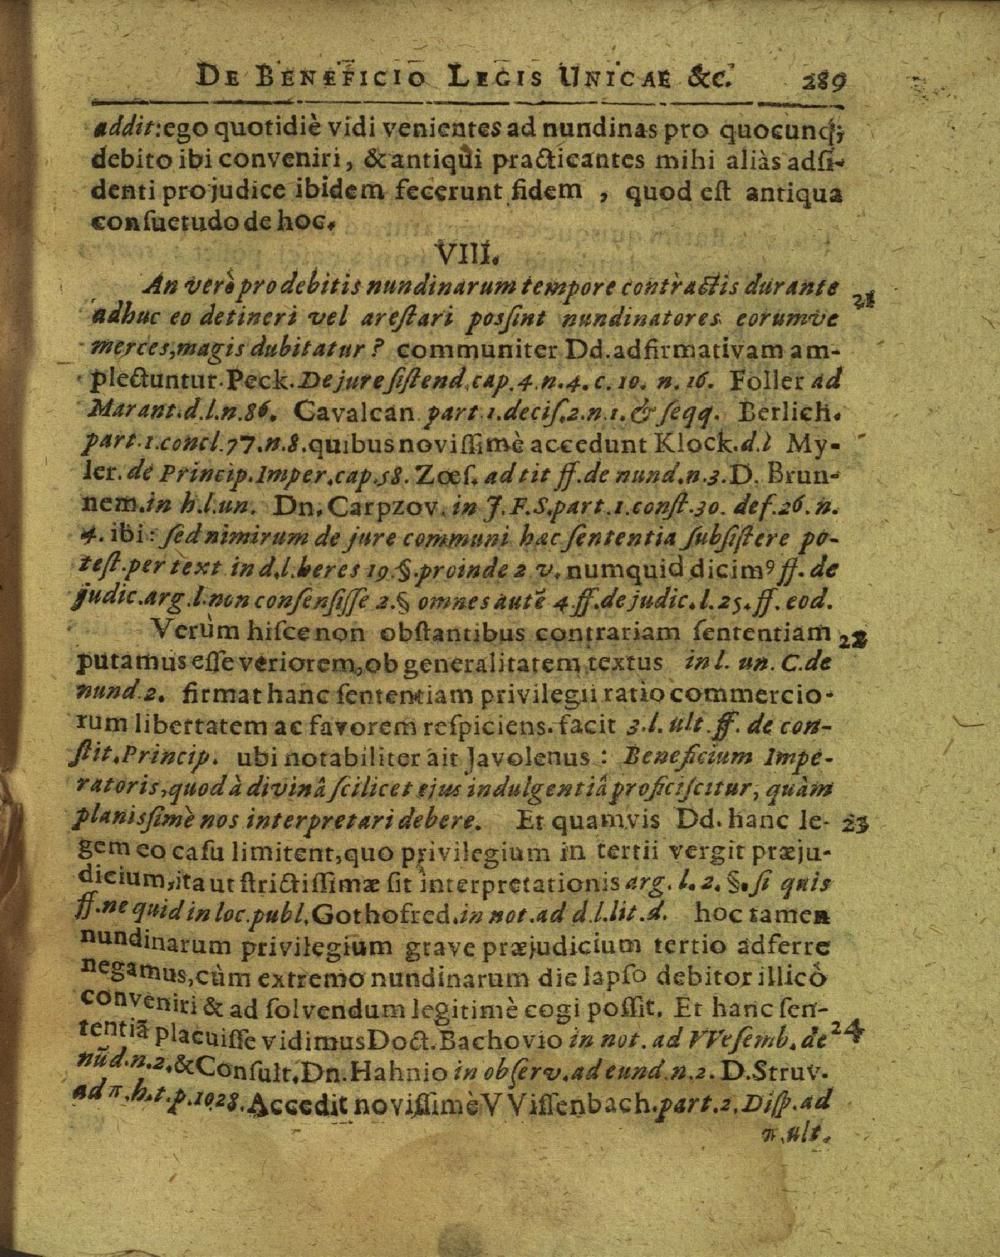 DE BENEFICIO LEGIS UNICAE &c. 289
addit: ego quotidiè vidi venientes ad nundinas pro quocunq;
debito ibi conveniri, & antiqui practicantes mihi aliàs adsi-
denti pro judice ibidem fecerunt fidem , quod est antiqua
consuetudo de hoc.
VIII.
An verò pro debitis nundinarum tempore contractis durante 21
adhuc eo detineri vel arestari possint nundinatores eorumve
merces, magis dubitatur? communiter Dd. adfirmativam am-
plectuntur. Peck. De jure sistend. cap. 4. n. 4. c. 10. n. 16. Foller ad
Marant. d. l. n. 86. Cavalcan part 1. decis. 2. n. 1. & seqq. Berlich.
part. 1. concl. 77. n. 8. quibus novissimè accedunt Klock. d. l My-
ler. de Princip. Imper. cap. 58. Zœs. ad tit ff. de nund. n. 3. D. Brun-
nem. in h. l. un. Dn. Carpzov. in J. F. S. part. 1. const. 30. def. 26. n.
4. ibi: sed nimirum de jure communi hac sententia subsistere po-
test. per text in d. l. heres 19. §. proinde 2 v. numquid dicimꝰ ff. de
judic. arg. l. non consensisse 2. § omnes autē 4. ff. de judic. l. 25. ff. eod.
Verùm hisce non obstantibus contrariam sententiam 22
putamus esse veriorem, ob generalitatem textus in l. un. C. de
nund. 2. firmat hanc sententiam privilegii ratio commercio-
rum libertatem ac favorem respiciens. facit 3. l. ult. ff. de con-
stit. Princip. ubi notabiliter ait Javolenus: Beneficium Impe-
ratoris, quod à divinâ scilicet ejus indulgentiâ proficiscitur, quàm
planissimè nos interpretari debere. Et quamvis Dd. hanc le- 23
gem eo casu limitent, quo privilegium in tertii vergit præju-
dicium, ita ut strictissimæ sit interpretationis arg. l. 2. §. si quis
ff. ne quid in loc. publ. Gothofred. in not. ad d. l. lit. d. hoc tamen
nundinarum privilegium grave præjudicium tertio adferre
negamus, cùm extremo nundinarum die lapso debitor illicò
conveniri & ad solvendum legitimè cogi possit. Et hanc sen-
tentiā placuisse vidimus Doct. Bachovio in not. ad VVesemb. de 24
nūd. n. 2. & Consult. Dn. Hahnio in observ. ad eund. n. 2. D. Struv.
ad π. h. t. p. 1028. Accedit novissimè VVissenbach. part. 2. Disp. ad
π. ult.